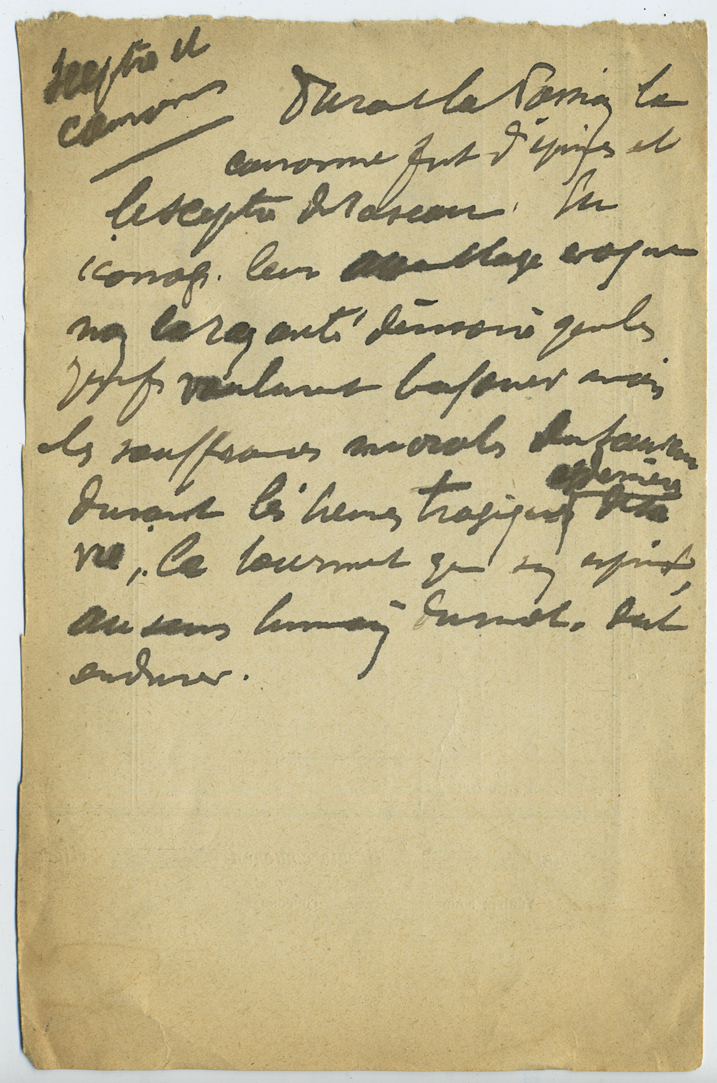 Sceptre et
couronnes
Durant la Passion la
couronne fut d'épines et
le sceptre de roseau. En
iconog. leur assemblage évoque
non la royauté dérisoire que les
Juifs voulurent bafouer mais
les souffrances morales du Sauveur
durant les heures tragiques
dernières
de sa
vie, le tourment que son esprit,
au sens humain du mot, dut
endurer.